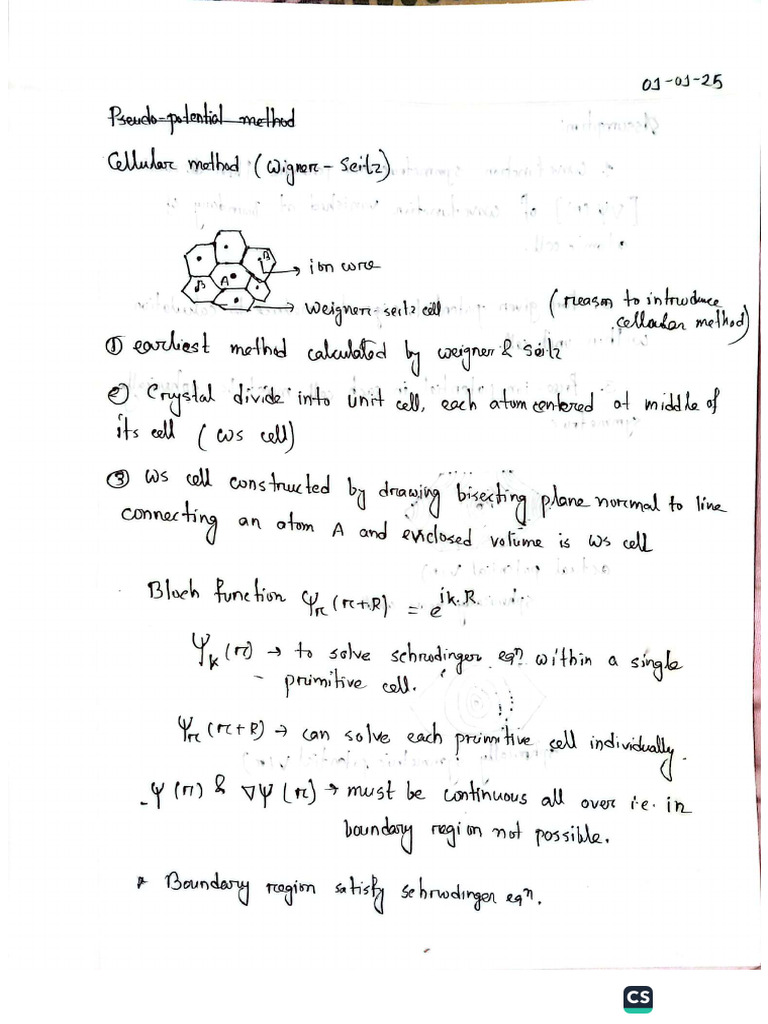 01-01-25
Pseudo-potential method
Cellular method (Wigner-Seitz)
B
A
B
ion core
Weigner-seitz cell
(reason to introduce
cellular method)
① earliest method calculated by weigner & seitz
② Crystal divide into unit cell, each atom centered at middle of
its cell (WS cell)
③ WS cell constructed by drawing bisecting plane normal to line
connecting an atom A and enclosed volume is WS cell
Bloch function Ψr(r+R) = e^ik.R
Ψk(r) → to solve schrodinger eqn within a single
primitive cell.
Ψr(r+R) → can solve each primitive cell individually.
Ψ(r) & ∇Ψ(r) → must be continuous all over i.e. in
boundary region not possible.
* Boundary region satisfy schrodinger eqn.
CS